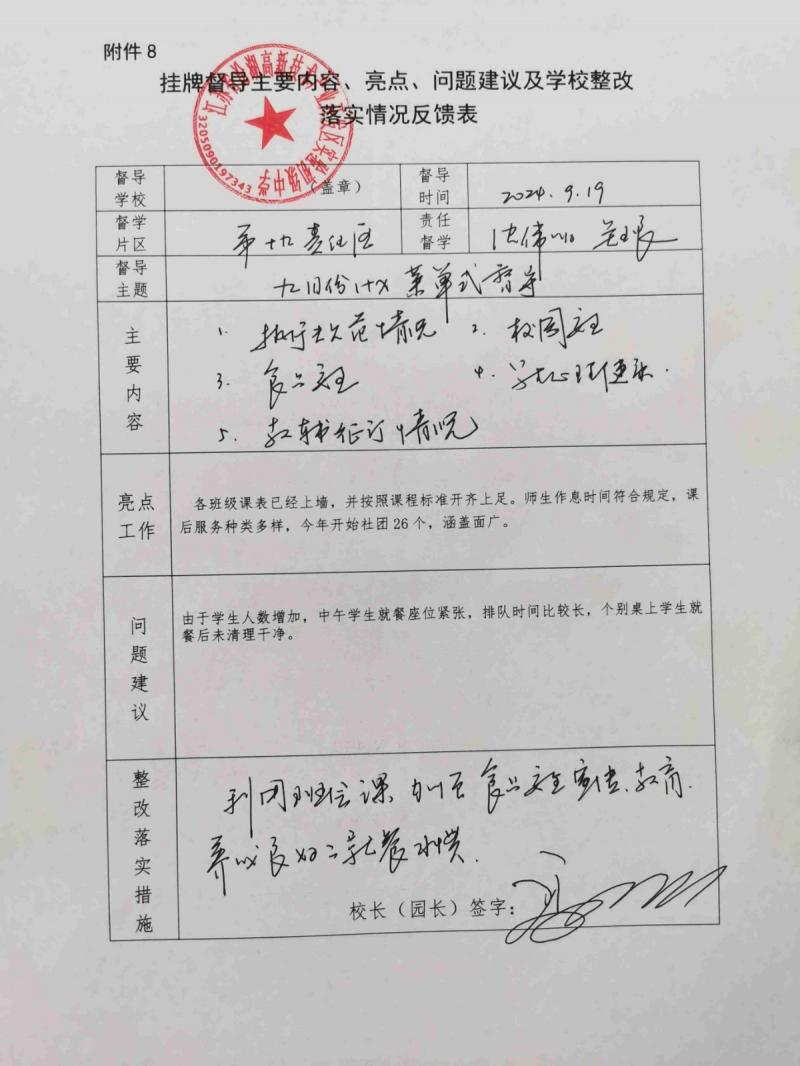 附件 8
挂牌督导主要内容、亮点、问题建议及学校整改
落实情况反馈表
江苏汾湖高新技术产业开发区实验初级中学
3205090197343
督导学校
（盖章）
督导时间
2024.9.19
督学片区
第十九责任区
责任督学
督导主题
九月份 菜单式督导
主要内容
1. 执行 规范情况 2. 校园安全
3. 食品安全 4. 学生心理健康.
5. 教辅征订情况
亮点工作
各班级课表已经上墙，并按照课程标准开齐上足。师生作息时间符合规定，课
后服务种类多样，今年开始社团 26 个，涵盖面广。
问题建议
由于学生人数增加，中午学生就餐座位紧张，排队时间比较长，个别桌上学生就
餐后未清理干净。
整改落实措施
利用班会课 加强食品安全宣传、教育.
养成良好 就餐习惯.
校长（园长）签字：